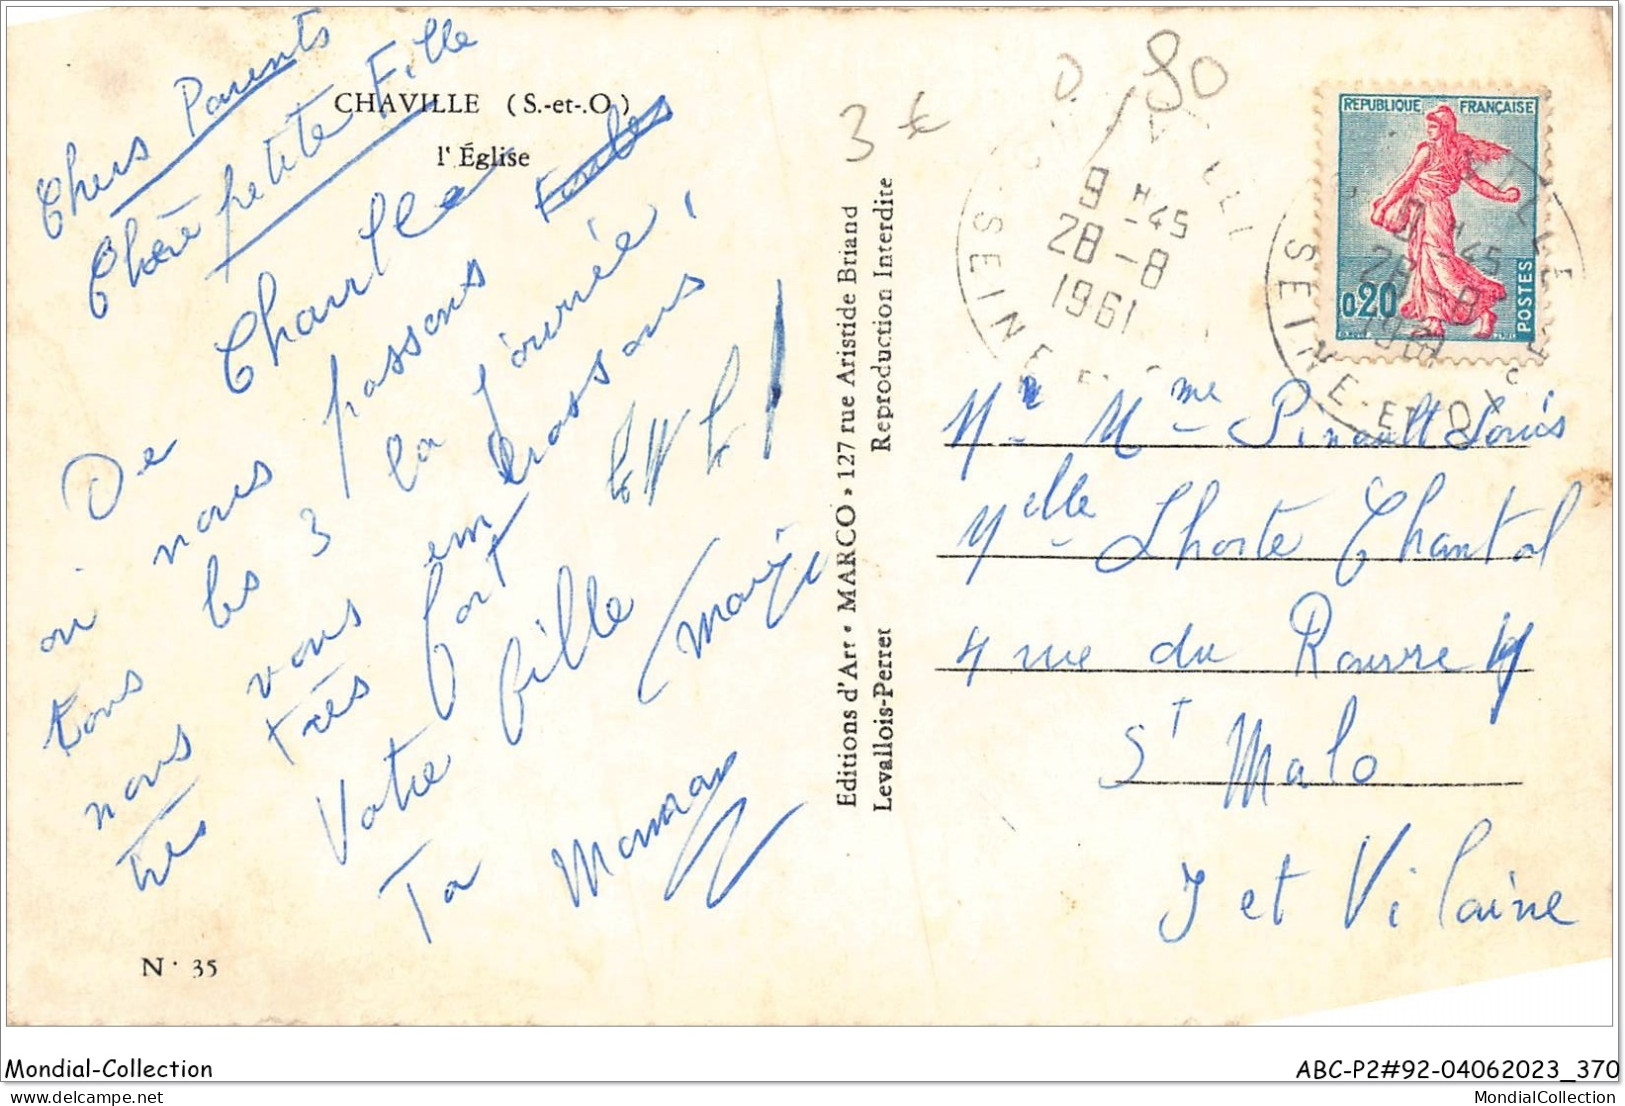 CHAVILLE (S.-et-.O.)
l' Église
Chers Parents
Chère petite Fille
De Chaville
où nous passons
tous les 3 la journée,
nous vous embrassons
très très fort
Votre fille
Ta Maman
N° 35
Editions d'Art • MARCO • 127 rue Aristide Briand
Levallois-Perret Reproduction Interdite
3 €
80
9 H 45
28 - 8
1961
SEINE
REPUBLIQUE FRANÇAISE
0,20
POSTES
9 H 45
28 - 8
1961
SEINE-ET-OISE
Mr Mme Pinault Louis
Melle Lhoste Chantal
4 rue du Rouvre
St Malo
I et Vilaine
Mondial-Collection
ABC-P2#92-04062023_370
MondialCollection